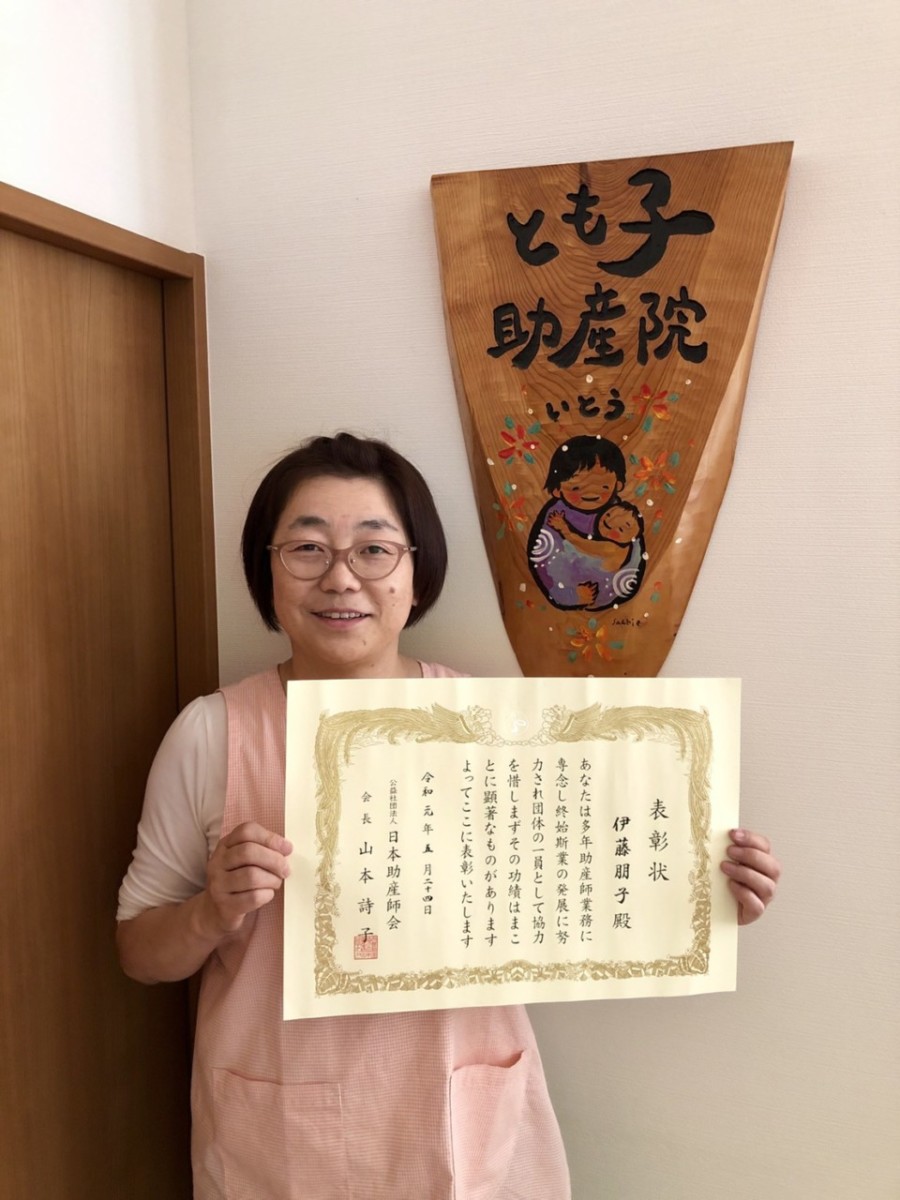 とも子
助産院
いとう
表彰状
伊藤朋子殿
あなたは多年助産師業務に
専念し終始斯業の発展に努
力され団体の一員として協力
を惜しまずその功績はまこ
とに顕著なものがあります
よってここに表彰いたします
令和元年五月二十四日
公益社団法人 日本助産師会
会長 山本詩子